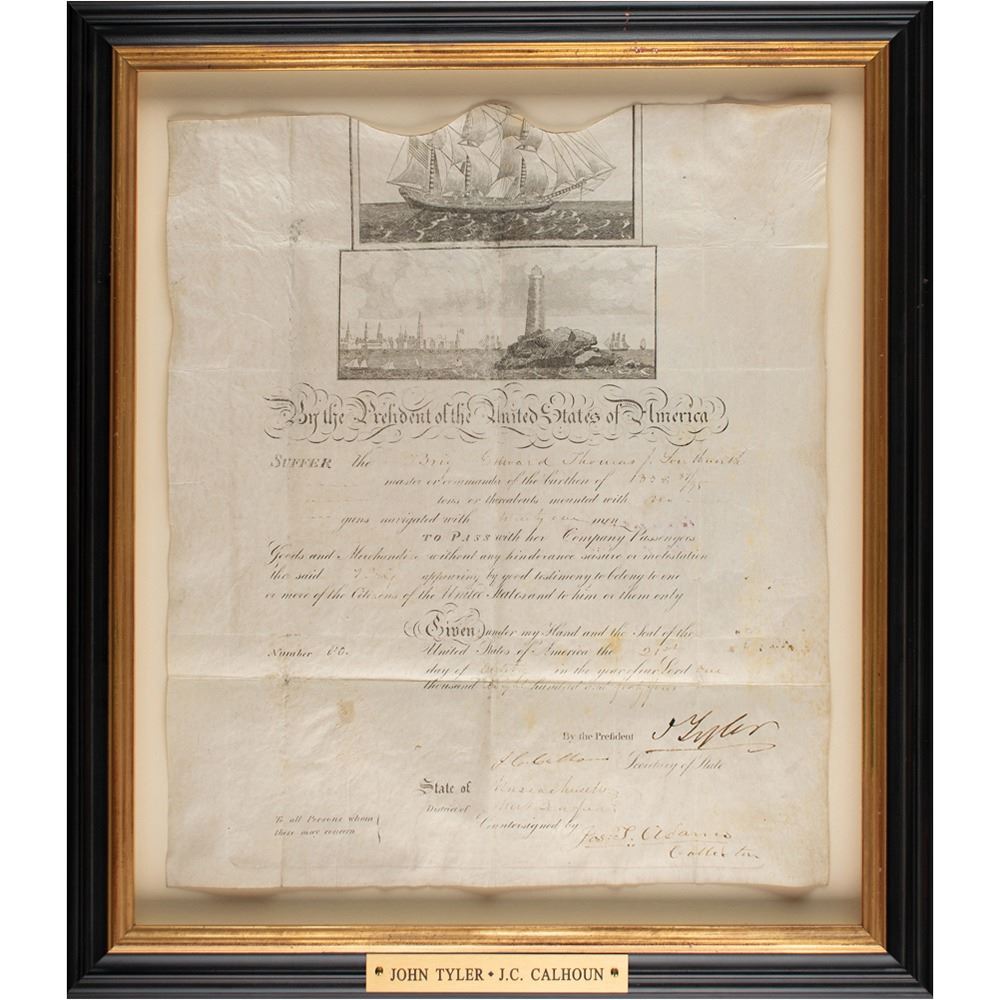 By the President of the United States of America
SUFFER the Brig Edward Thomas J. Southworth
master or commander of the burthen of 133
tons or thereabouts mounted with no
guns navigated with twenty one men
TO PASS with her Company Passengers
Goods and Merchandise without any hinderance seisure or molestation
the said Brig appearing by good testimony to belong to one
or more of the Citizens of the United States and to him or them only
Given under my Hand and the Seal of the
Number 60. United States of America the 21st
day of in the year of our Lord one
thousand Eight hundred and forty four
By the President J Tyler
J. C. Calhoun Secretary of State
State of Massachusetts
District of
To all Persons whom
these may concern
Countersigned by Jos. T. Adams
Collector
JOHN TYLER • J.C. CALHOUN